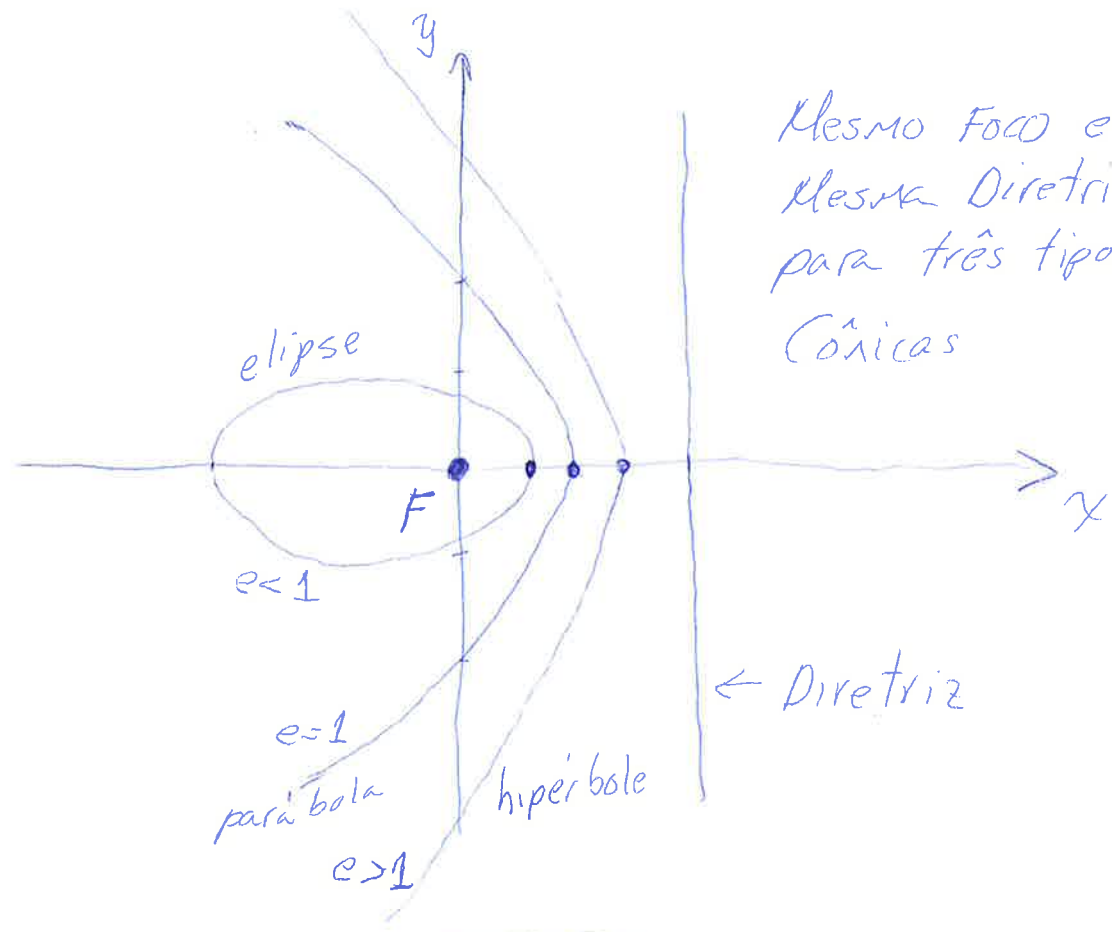 y
Mesmo Foco e
Mesma Diretri
para três tipo
Cônicas
elipse
F
x
e<1
← Diretriz
e=1
parábola
hipérbole
e>1